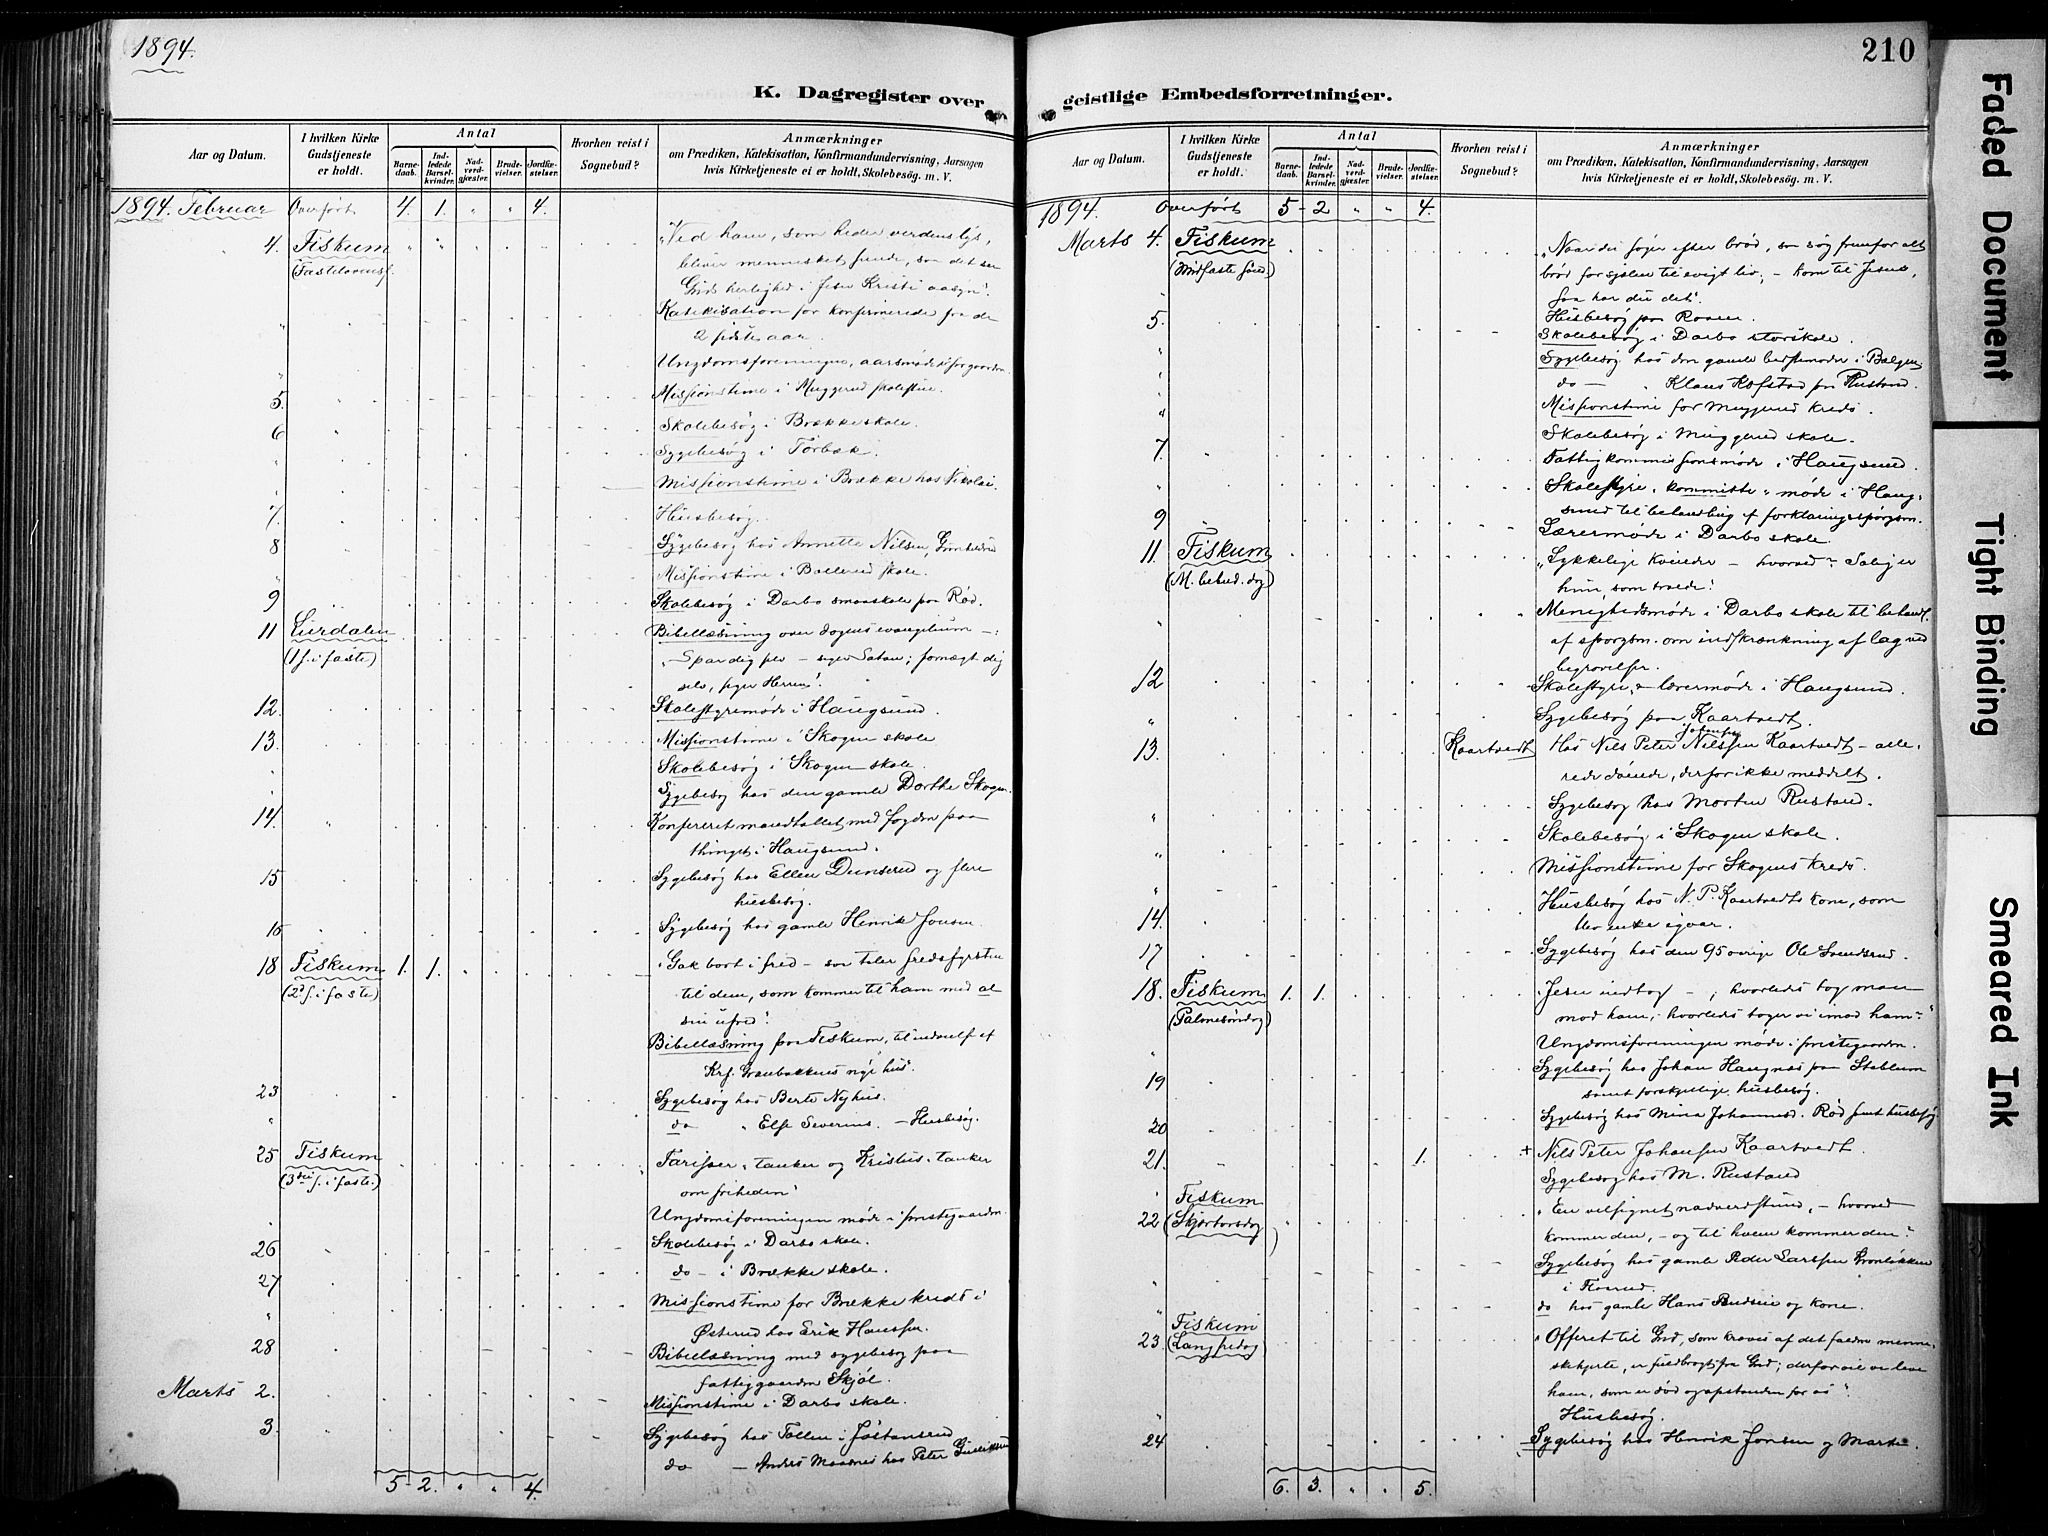 1894.
K. Dagregister over
Aar og Datum.
I hvilken Kirke Gudstjeneste er holdt.
Antal
Barnedaab.
Indledede Barselkvinder.
Nadverdgjæster.
Brudevielser.
Jordfæstelser.
Hvorhen reist i Sognebud?
Anmærkninger
om Prædiken, Katekisation, Konfirmandundervisning, Aarsagen
hvis Kirketjeneste ei er holdt, Skolebesøg. m. V.
1894. Februar Overført 4. 1. " " 4.
4. Fiskum " " "Ved ham, som heder verdens lys,
(Fastelavnsf. bliver mennesket
Guds herlighed i Jesu Kristi aasyn".
Katekisation for konfirmerede fra de
2 sidste aar.
" Ungdomsforeningens aarsmøde
5. Missionstime i Muggerud skolestue.
6 Skolebesøg i Brække skole.
" Sygebesøg i Torbæk.
" Missionstime i Brække hos Nikolai.
7. Husbesøg.
8 Sygebesøg hos Annette Nilsen
" Missionstime i Bollerud skole.
9 Skolebesøg i Darbo smaaskole paa Rød.
11 Lurdalen Bibellæsning over dagens evangelium -:
(1 s. i faste) "Spar dig selv - siger Satan; fornægt dig
selv, siger Herren".
12. Skolestyremøde i Haugsund.
13. Missionstime i Skogen skole
" Skolebesøg i Skogen skole.
" Sygebesøg hos den gamle Dorthe Skogen.
14. " Konfereret mandtallet med fogden paa
thinget i Haugsund.
15 Sygebesøg hos Ellen Dunserud og flere
husbesøg.
16 Sygebesøg hos gamle Henrik Jonsen.
18 Fiskum 1. 1. "Gak bort i fred - saa taler fredsfyrsten
(2d s. i faste) til dem, som kommer til ham med al
sin ufred".
Bibellæsning paa Fiskum, til indvielse af
nye hus".
23 Sygebesøg hos Berte Nyhus.
" do " Else Severins. - Husbesøg.
25 Fiskum Farisæer-tanker og Kristus-tanker
(3die s. i faste.) om friheden"
" Ungdomsforeningen møde i prestegaarden.
26 Skolebesøg i Darbo skole.
27 do - i Brække skole.
" Missionstime for Brække kreds i
Østerud hos Erik Hanssen.
28 Bibellæsning med sygebesøg paa
fattiggaarden Skjøl.
Marts 2. Missionstime i Darbo skole.
3. Sygebesøg hos
do - Anders hos Peter
5 2. " " 4.
210
geistlige Embedsforretninger.
Aar og Datum.
I hvilken Kirke Gudstjeneste er holdt.
Antal
Barnedaab.
Indledede Barselkvinder.
Nadverdgjæster.
Brudevielser.
Jordfæstelser.
Hvorhen reist i Sognebud?
Anmærkninger
om Prædiken, Katekisation, Konfirmandundervisning, Aarsagen
hvis Kirketjeneste ei er holdt, Skolebesøg. m. V.
1894. Overført 5 - 2 " " 4.
Marts 4. Fiskum "Naar du søger efter brød, saa søg fremfor alt
(Midfaste søn.) brød for sjælen til evigt liv; - kom til Jesus,
saa har du det".
5. Husbesøg paa Roen.
" Skolebesøg i Darbo storskole.
" Sygebesøg hos den gamle bedstemoder i
" do - " Klaus Kopstad paa Rustand.
" Missionstime for Muggerud kreds.
7. Skolebesøg i Muggerud skole.
" Fattigkommissionsmøde i Haugsund.
" Skolestyre-kommiste-møde i Haugsund til behandling af forklaringsspørgsm.
9 Lærermøde i Darbo skole.
11. Fiskum "Lykkelige kvinde - hvorved? - Salig er
(M. bebud. dag) hun, som troede".
" Menighedsmøde i Darbo skole til behandl.
af spørgsm. om indskrænkning af lag ved
begravelser.
12 Skolestyre- & lærermøde i Haugsund.
" Sygebesøg paa Kaartvedt.
13. Kaartvedt Hos Nils Peter Johansen Nilssen Kaartvedt - allerede døende, derfor ikke meddelt.
Sygebesøg hos Morten Rustand.
" Skolebesøg i Skogen skole.
" Missionstime for Skogens kreds.
14. Husbesøg hos N. P. Kaartvedts kone, som
blev enke igaar.
17 Sygebesøg hos den 95 aarige Ole
18. Fiskum 1. 1. "Jesu indtog -; hvorledes tog man
(Palmesøndag) mod ham, - hvorledes tager vi imod ham?"
" Ungdomsforeningen møde i prestegaarden.
19 Sygebesøg hos Johan Haugnæs paa Stablum
samt forskjellige husbesøg.
20 Sygebesøg hos Mina Johannesd. Rød samt husbesøg
21. " 1. + Nils Peter Johansen Kaartvedt.
" Sygebesøg hos M. Rustand
Fiskum "En velsignet nadverdstund, - hvorved
22 (Skjærtorsdag) kommer den, - og til hvem kommer den?"
" Sygebesøg hos gamle Peder Larssen Grønløkken
i
" do hos gamle Hans og kone.
Fiskum "Offeret til Gud, som kræves af det faldne menne-
23 (Langfredag) skehjerte, er fuldbragt fra Gud; derfor vil vi leve
ham, som er død og opstanden for os".
" Husbesøg.
24 Sygebesøg hos Henrik Jonsen og Marte.
6. 3. " " 5.
Faded Document
Tight Binding
Smeared Ink